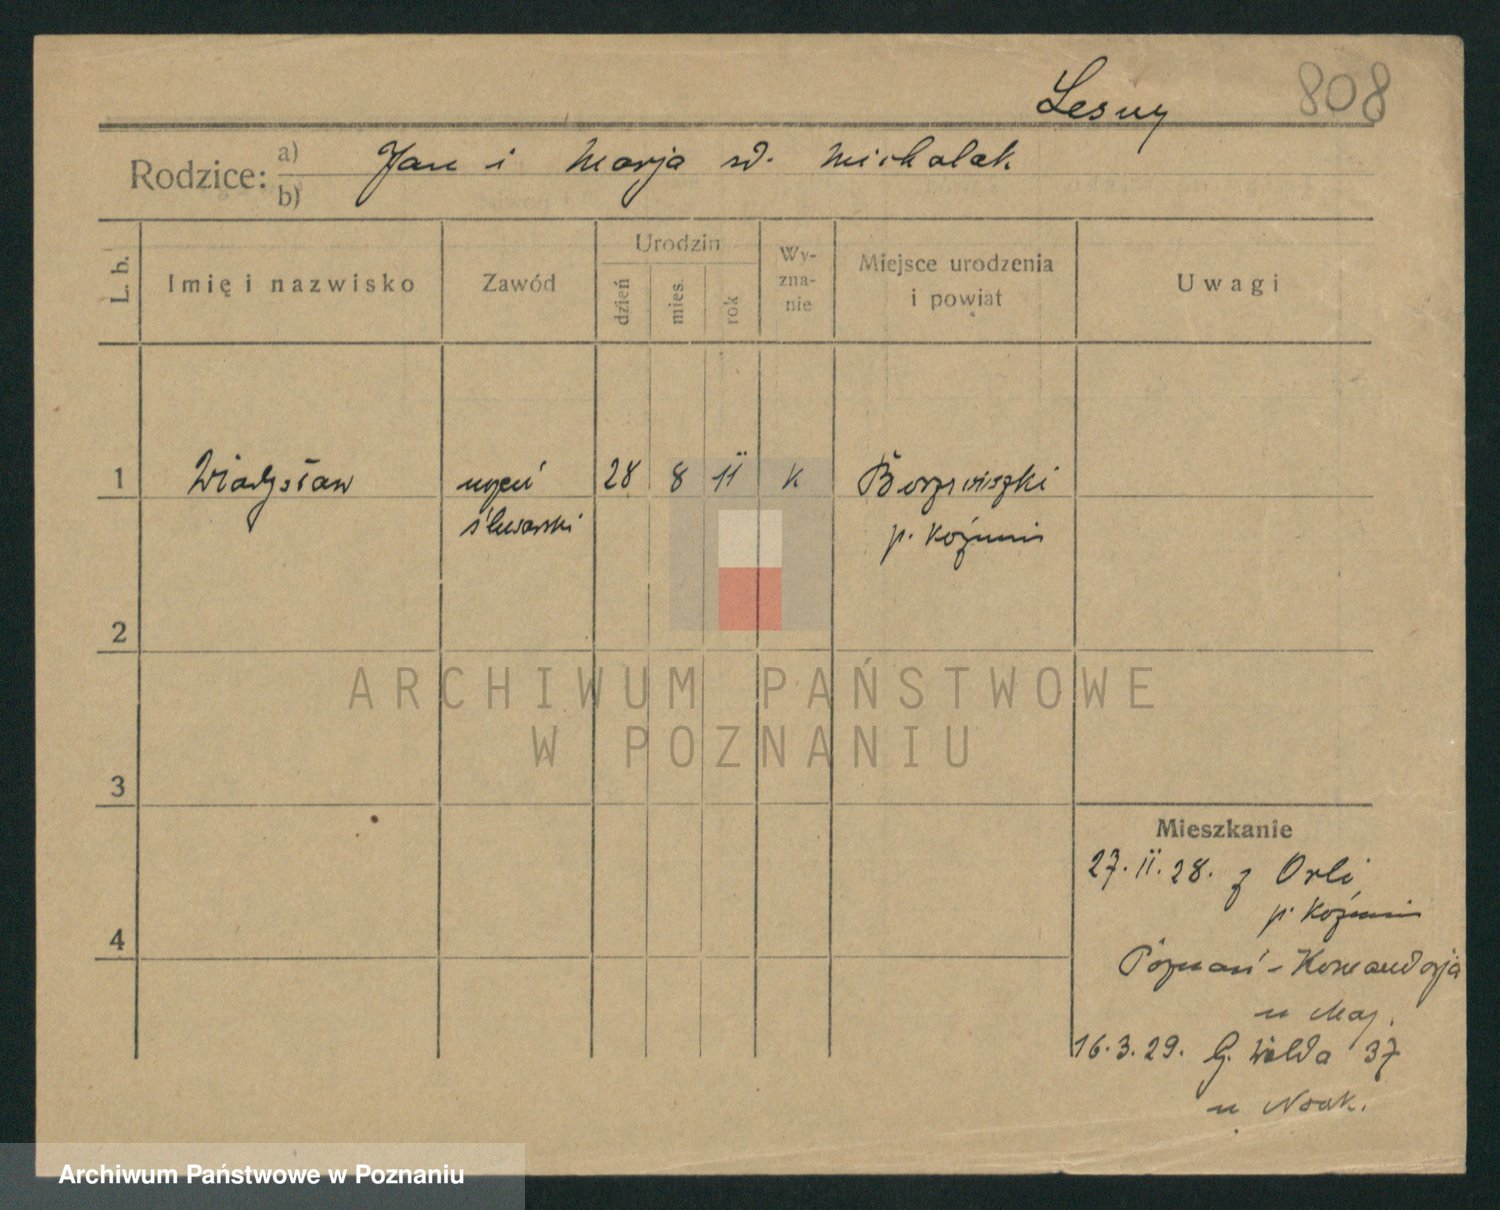 Lesny 808
Rodzice: a) b) Jan i Marja xd. Michalak
L. b. Imię i nazwisko Zawód Urodzin dzień mies. rok Wy- zna- nie Miejsce urodzenia i powiat Uwagi
1 Władysław uczeń 28 8 11 k Borzęciszki
ślusarski p. Koźmin
2
3
4
Mieszkanie
27. II. 28. z Orli
p. Koźmin
Poznań - Komandorja
u Maj.
16. 3. 29. G. Wilda 37
u Noak.
ARCHIWUM PAŃSTWOWE
W POZNANIU
Archiwum Państwowe w Poznaniu